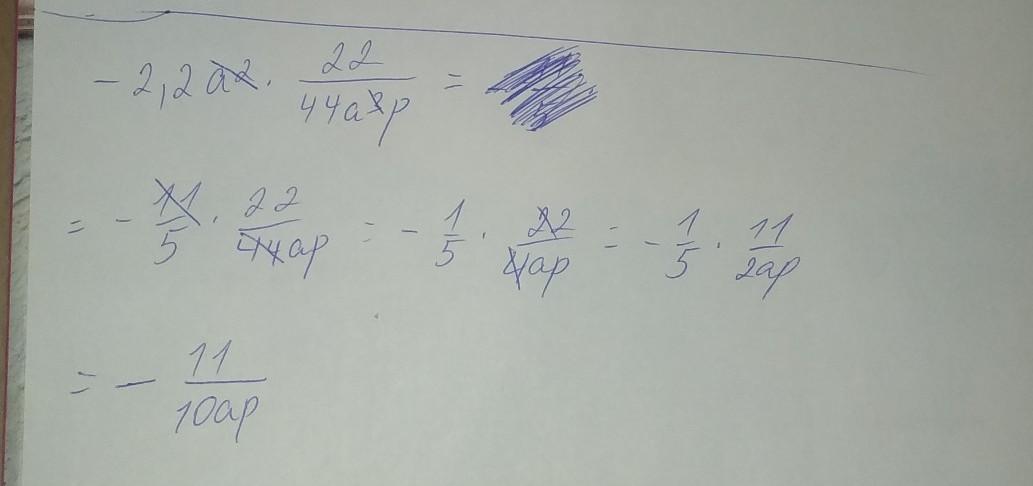 - 2,2 a2 · 22/44a8p =
= - 11/5 · 22/44ap = - 1/5 · 22/4ap = - 1/5 · 11/2ap
= - 11/10ap